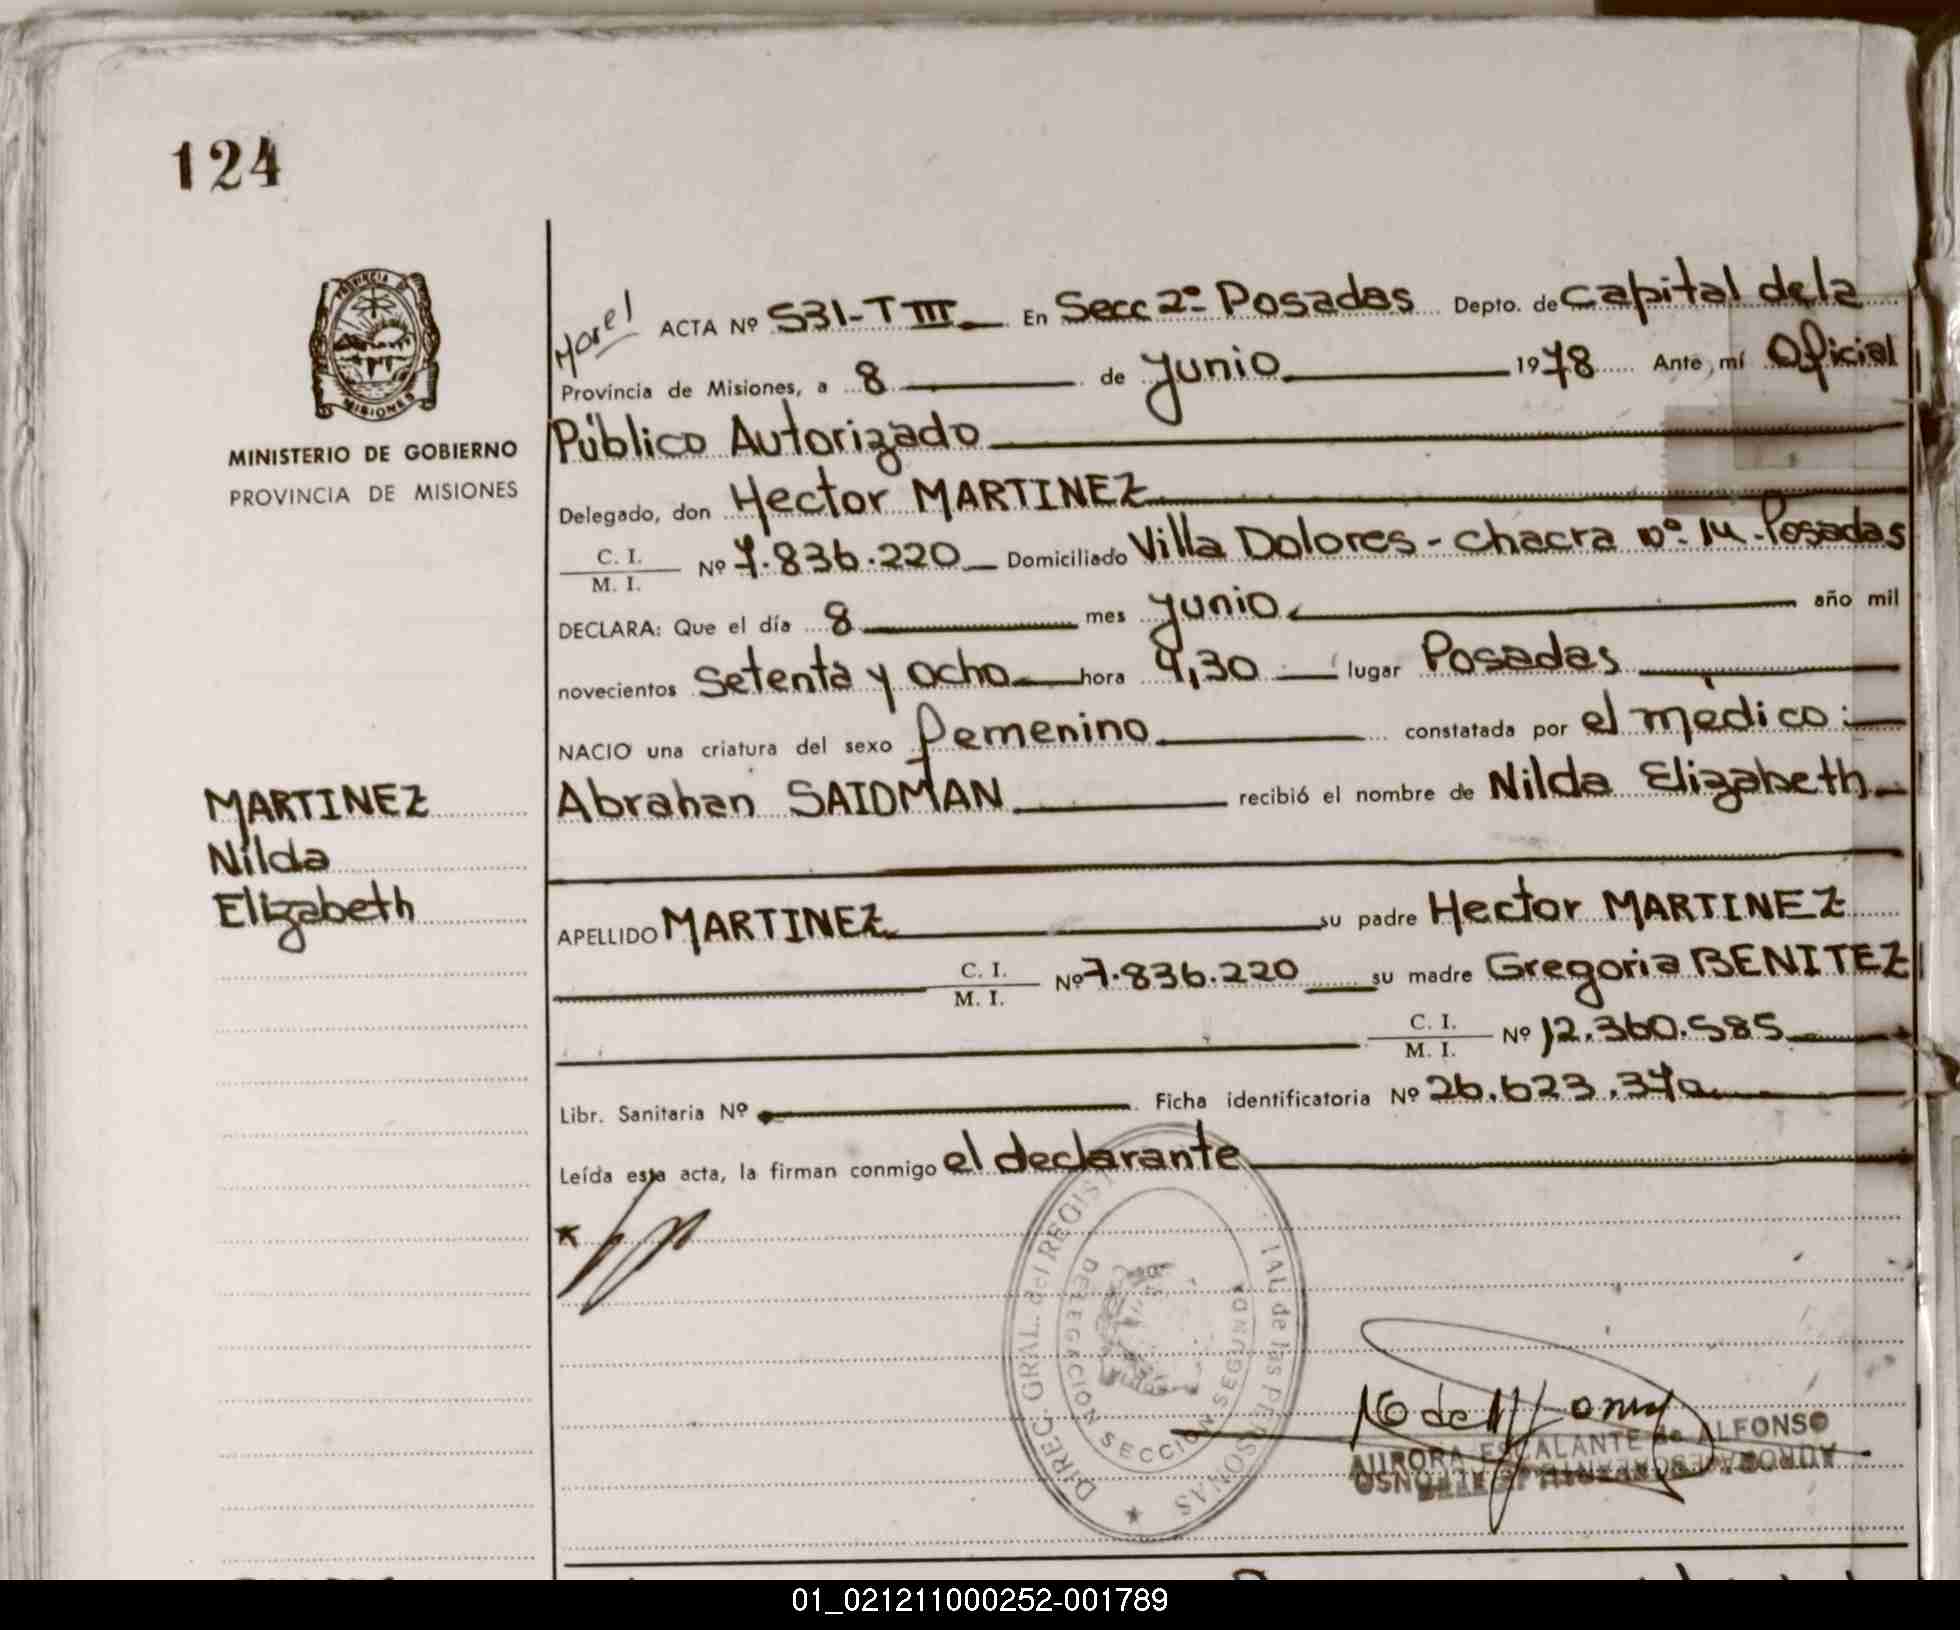 124
PROVINCIA DE
MISIONES
MINISTERIO DE GOBIERNO
PROVINCIA DE MISIONES
MARTINEZ
Nilda
Elizabeth
Morel ACTA Nº 531-T III En Secc 2º Posadas Depto. de Capital de la
Provincia de Misiones, a 8 de junio 1978 Ante mí Oficial
Público Autorizado
Delegado, don Hector MARTINEZ
C. I.
M. I. Nº 7.836.220 Domiciliado Villa Dolores - chacra nº 14 - Posadas
DECLARA: Que el día 8 mes junio año mil
novecientos setenta y ocho hora 4,30 lugar Posadas
NACIO una criatura del sexo femenino constatada por el médico:
Abrahan SAIDMAN recibió el nombre de Nilda Elizabeth
APELLIDO MARTINEZ su padre Hector MARTINEZ
C. I.
M. I. Nº 7.836.220 su madre Gregoria BENITEZ
C. I.
M. I. Nº 12.360.585
Libr. Sanitaria Nº Ficha identificatoria Nº 26.623.
Leída esta acta, la firman conmigo el declarante
DIREC. GRAL. del REGIST de las PERSONAS
DELEGACION SECCION SEGUNDA
AURORA ESCALANTE de ALFONSO
01_021211000252-001789